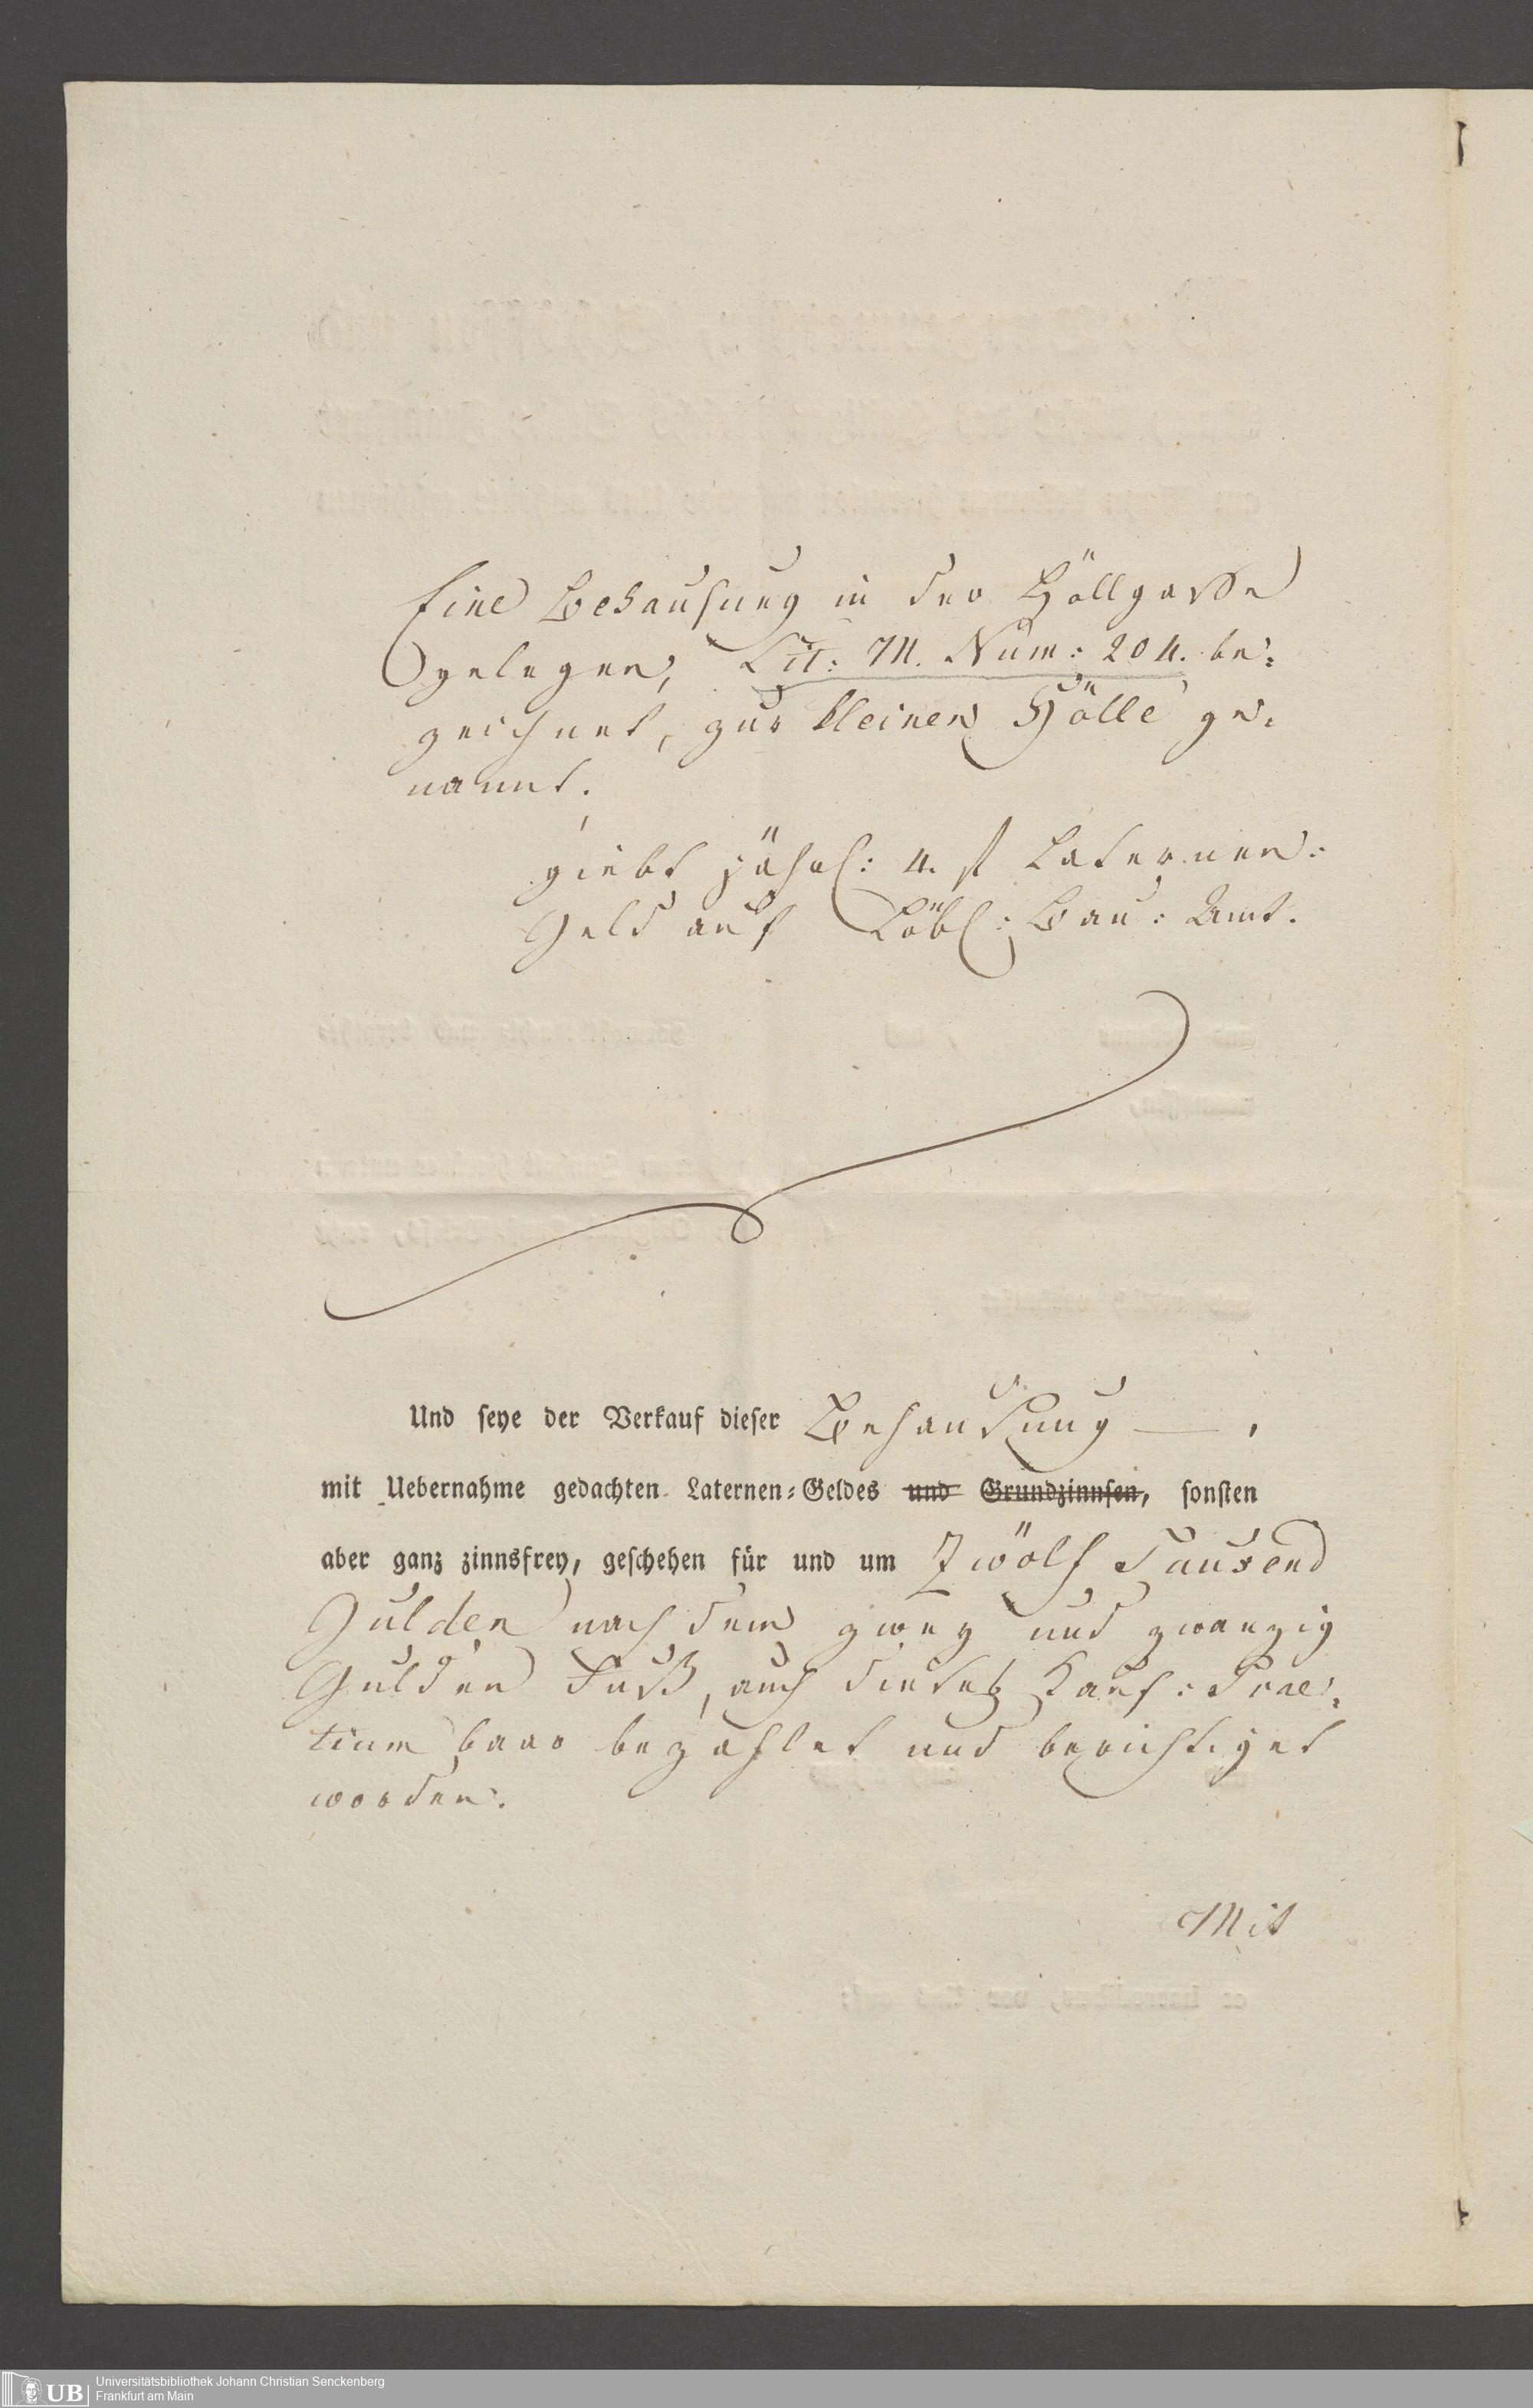 Eine Behausung in der Höllgasse
gelegen, Lit: M. Num: 204. be:
zeichnet, zur kleinen Hölle ge:
nannt.
giebt jährl: 4. f Laternen:
Geld auf Löbl: Bau: Amt.
Und seye der Verkauf dieser Behausung — ,
mit Uebernahme gedachten Laternen-Geldes und Grundzinnsen, sonsten
aber ganz zinnsfrey, geschehen für und um Zwölf Tausend
Gulden nach dem zwey und zwanzig
Gulden Fuß, auch dieses Kauf: Prae:
tium baar bezahlet und berichtiget
worden.
Mit
UB
Universitätsbibliothek Johann Christian Senckenberg
Frankfurt am Main